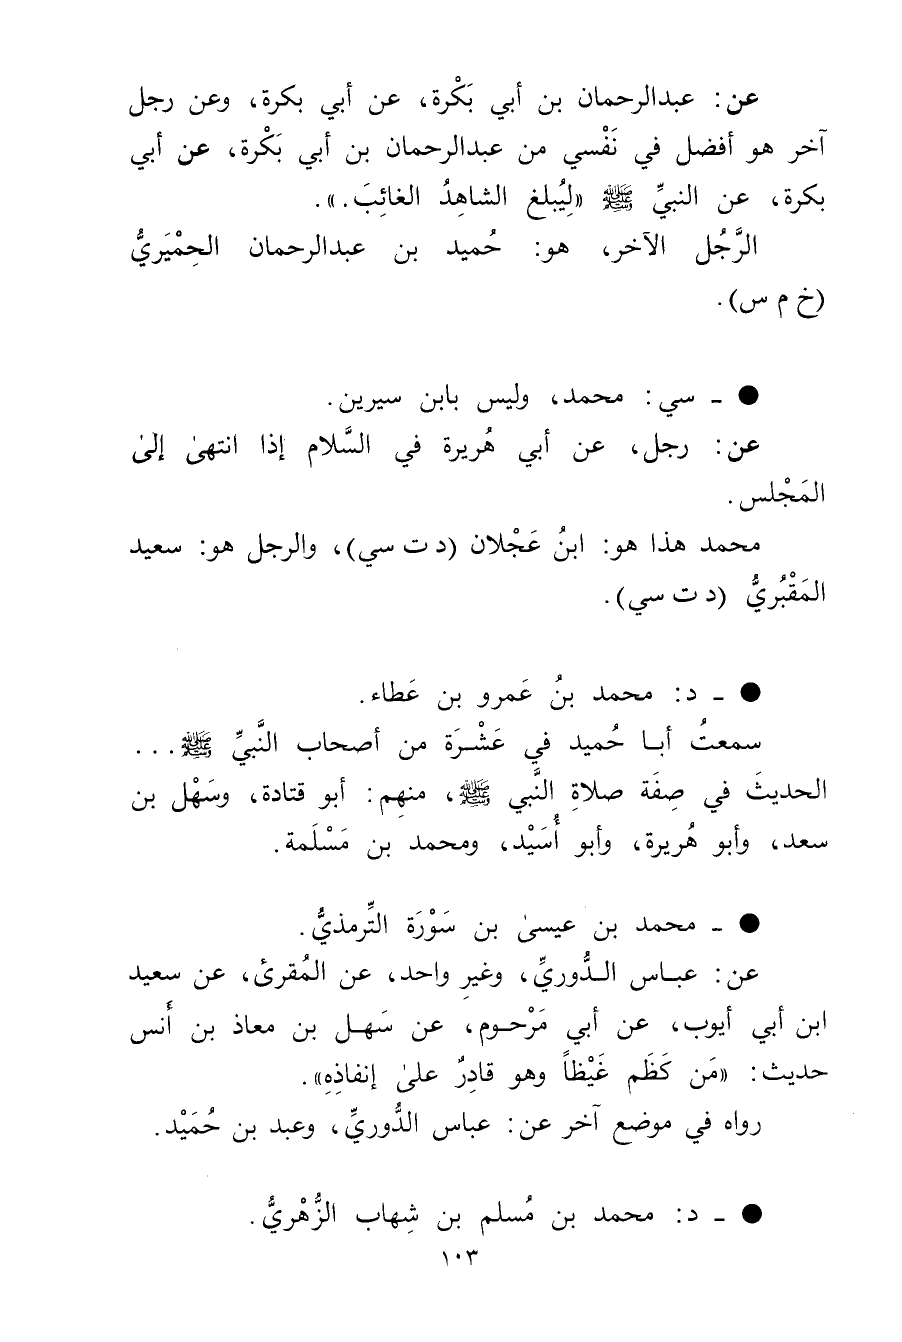 عن: عبدالرحمان بن أبي بَكْرة، عن أبي بكرة، وعن رجل
آخر هو أفضل في نَفْسي من عبدالرحمان بن أبي بَكْرة، عن أبي
بكرة، عن النبيِّ ﷺ «لِيُبلغ الشاهِدُ الغائِبَ.».
الرَّجُل الآخر، هو: حُميد بن عبدالرحمان الحِمْيَريُّ
(خ م س).
● ـ سي: محمد، وليس بابن سيرين.
عن: رجل، عن أبي هُريرة في السَّلام إذا انتهىٰ إلىٰ
المَجْلس.
محمد هذا هو: ابنُ عَجْلان (د ت سي)، والرجل هو: سعيد
المَقْبُريُّ (د ت سي).
● ـ د: محمد بنُ عَمرو بن عَطاء.
سمعتُ أبا حُميد في عَشْرَة من أصحاب النَّبيِّ ﷺ...
الحديثَ في صِفَة صلاةِ النَّبي ﷺ، منهِم: أبو قتادة، وسَهْل بن
سعد، وأبو هُريرة، وأبو أُسَيْد، ومحمد بن مَسْلَمة.
● ـ محمد بن عيسىٰ بن سَوْرَة التِّرمذيُّ.
عن: عباس الدُّوريِّ، وغيرِ واحد، عن المُقرىٔ، عن سعيد
ابن أبي أيوب، عن أبي مَرْحوم، عن سَهل بن معاذ بن أَنس
حديث: «مَن كَظَم غَيْظاً وهو قادِرٌ علىٰ إنفاذِهِ».
رواه في موضع آخر عن: عباس الدُّوريِّ، وعبد بن حُمَيْد.
● ـ د: محمد بن مُسلم بن شِهاب الزُّهْريُّ.
١٠٣